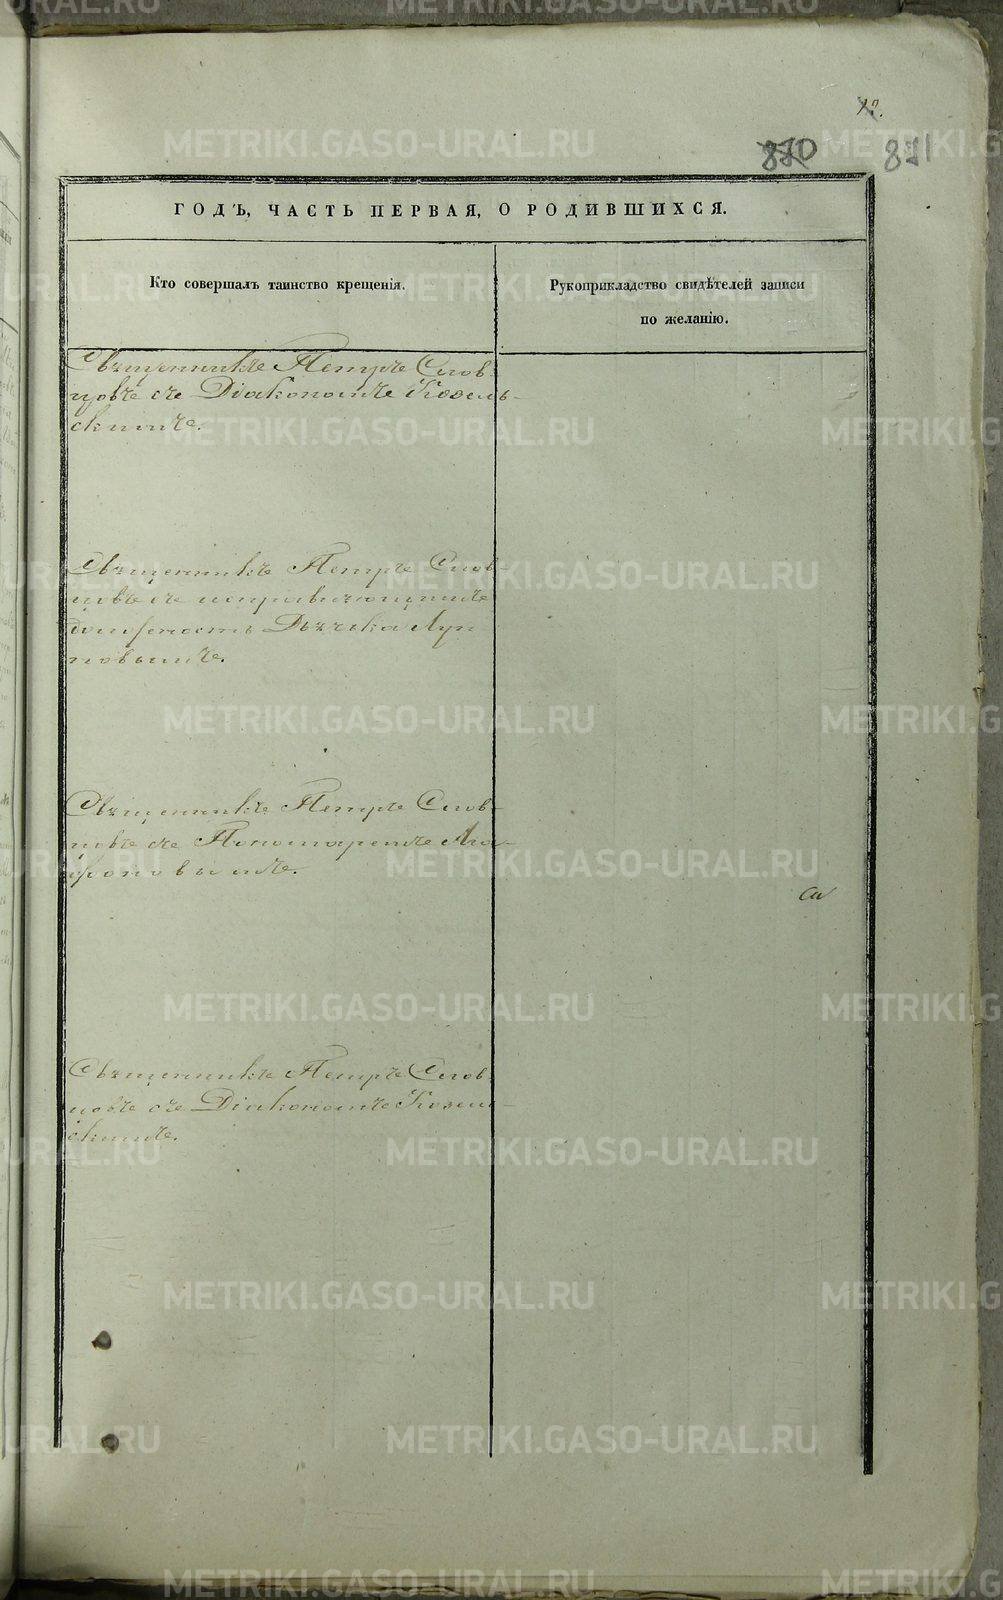 12.
870 871
ГОДЪ, ЧАСТЬ ПЕРВАЯ, О РОДИВШИХСЯ.
Кто совершалъ таинство крещенія.
Рукоприкладство свидѣтелей записи
по желанію.
Священникъ Петръ Слов-
цовъ съ Діакономъ Козель-
скимъ.
Священникъ Петръ Слов-
цовъ съ исправляющимъ
должность Дьячка Луп
повымъ.
Священникъ Петръ Слов-
цовъ съ Пономаремъ
Священникъ Петръ Слов-
цовъ съ Діакономъ Козель-
скимъ.
METRIKI.GASO-URAL.RU